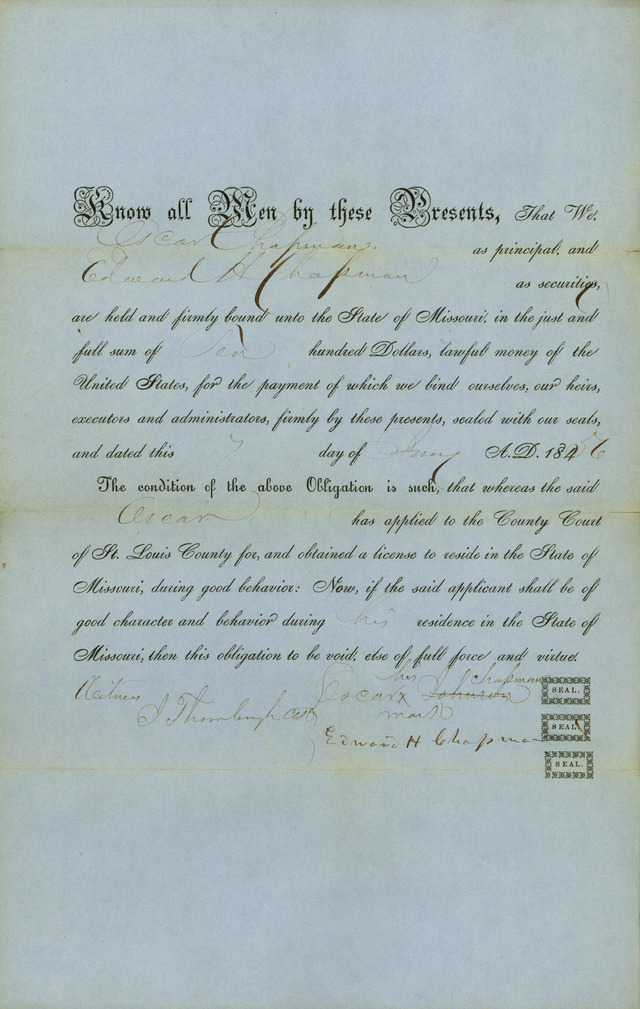 Know all Men by these Presents, That We,
Oscar Chapman. as principal, and
Edward H Chapman as securities,
are held and firmly bound unto the State of Missouri, in the just and
full sum of Ten hundred Dollars, lawful money of the
United States, for the payment of which we bind ourselves, our heirs,
executors and administrators, firmly by these presents, sealed with our seals,
and dated this 7 day of A.D. 1856
The condition of the above Obligation is such, that whereas the said
Oscar has applied to the County Court
of St. Louis County for, and obtained a license to reside in the State of
Missouri, during good behavior: Now, if the said applicant shall be of
good character and behavior during his residence in the State of
Missouri, then this obligation to be void, else of full force and virtue.
his Chapman
Witness Oscar x Johnson SEAL.
J Thornburgh mark
Edward H Chapman SEAL.
SEAL.